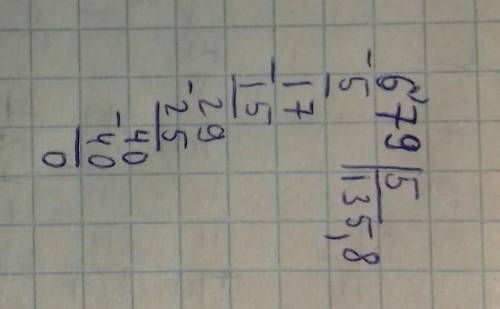 679 | 5
-5 | 135,8
-17
15
29
-25
40
-40
0